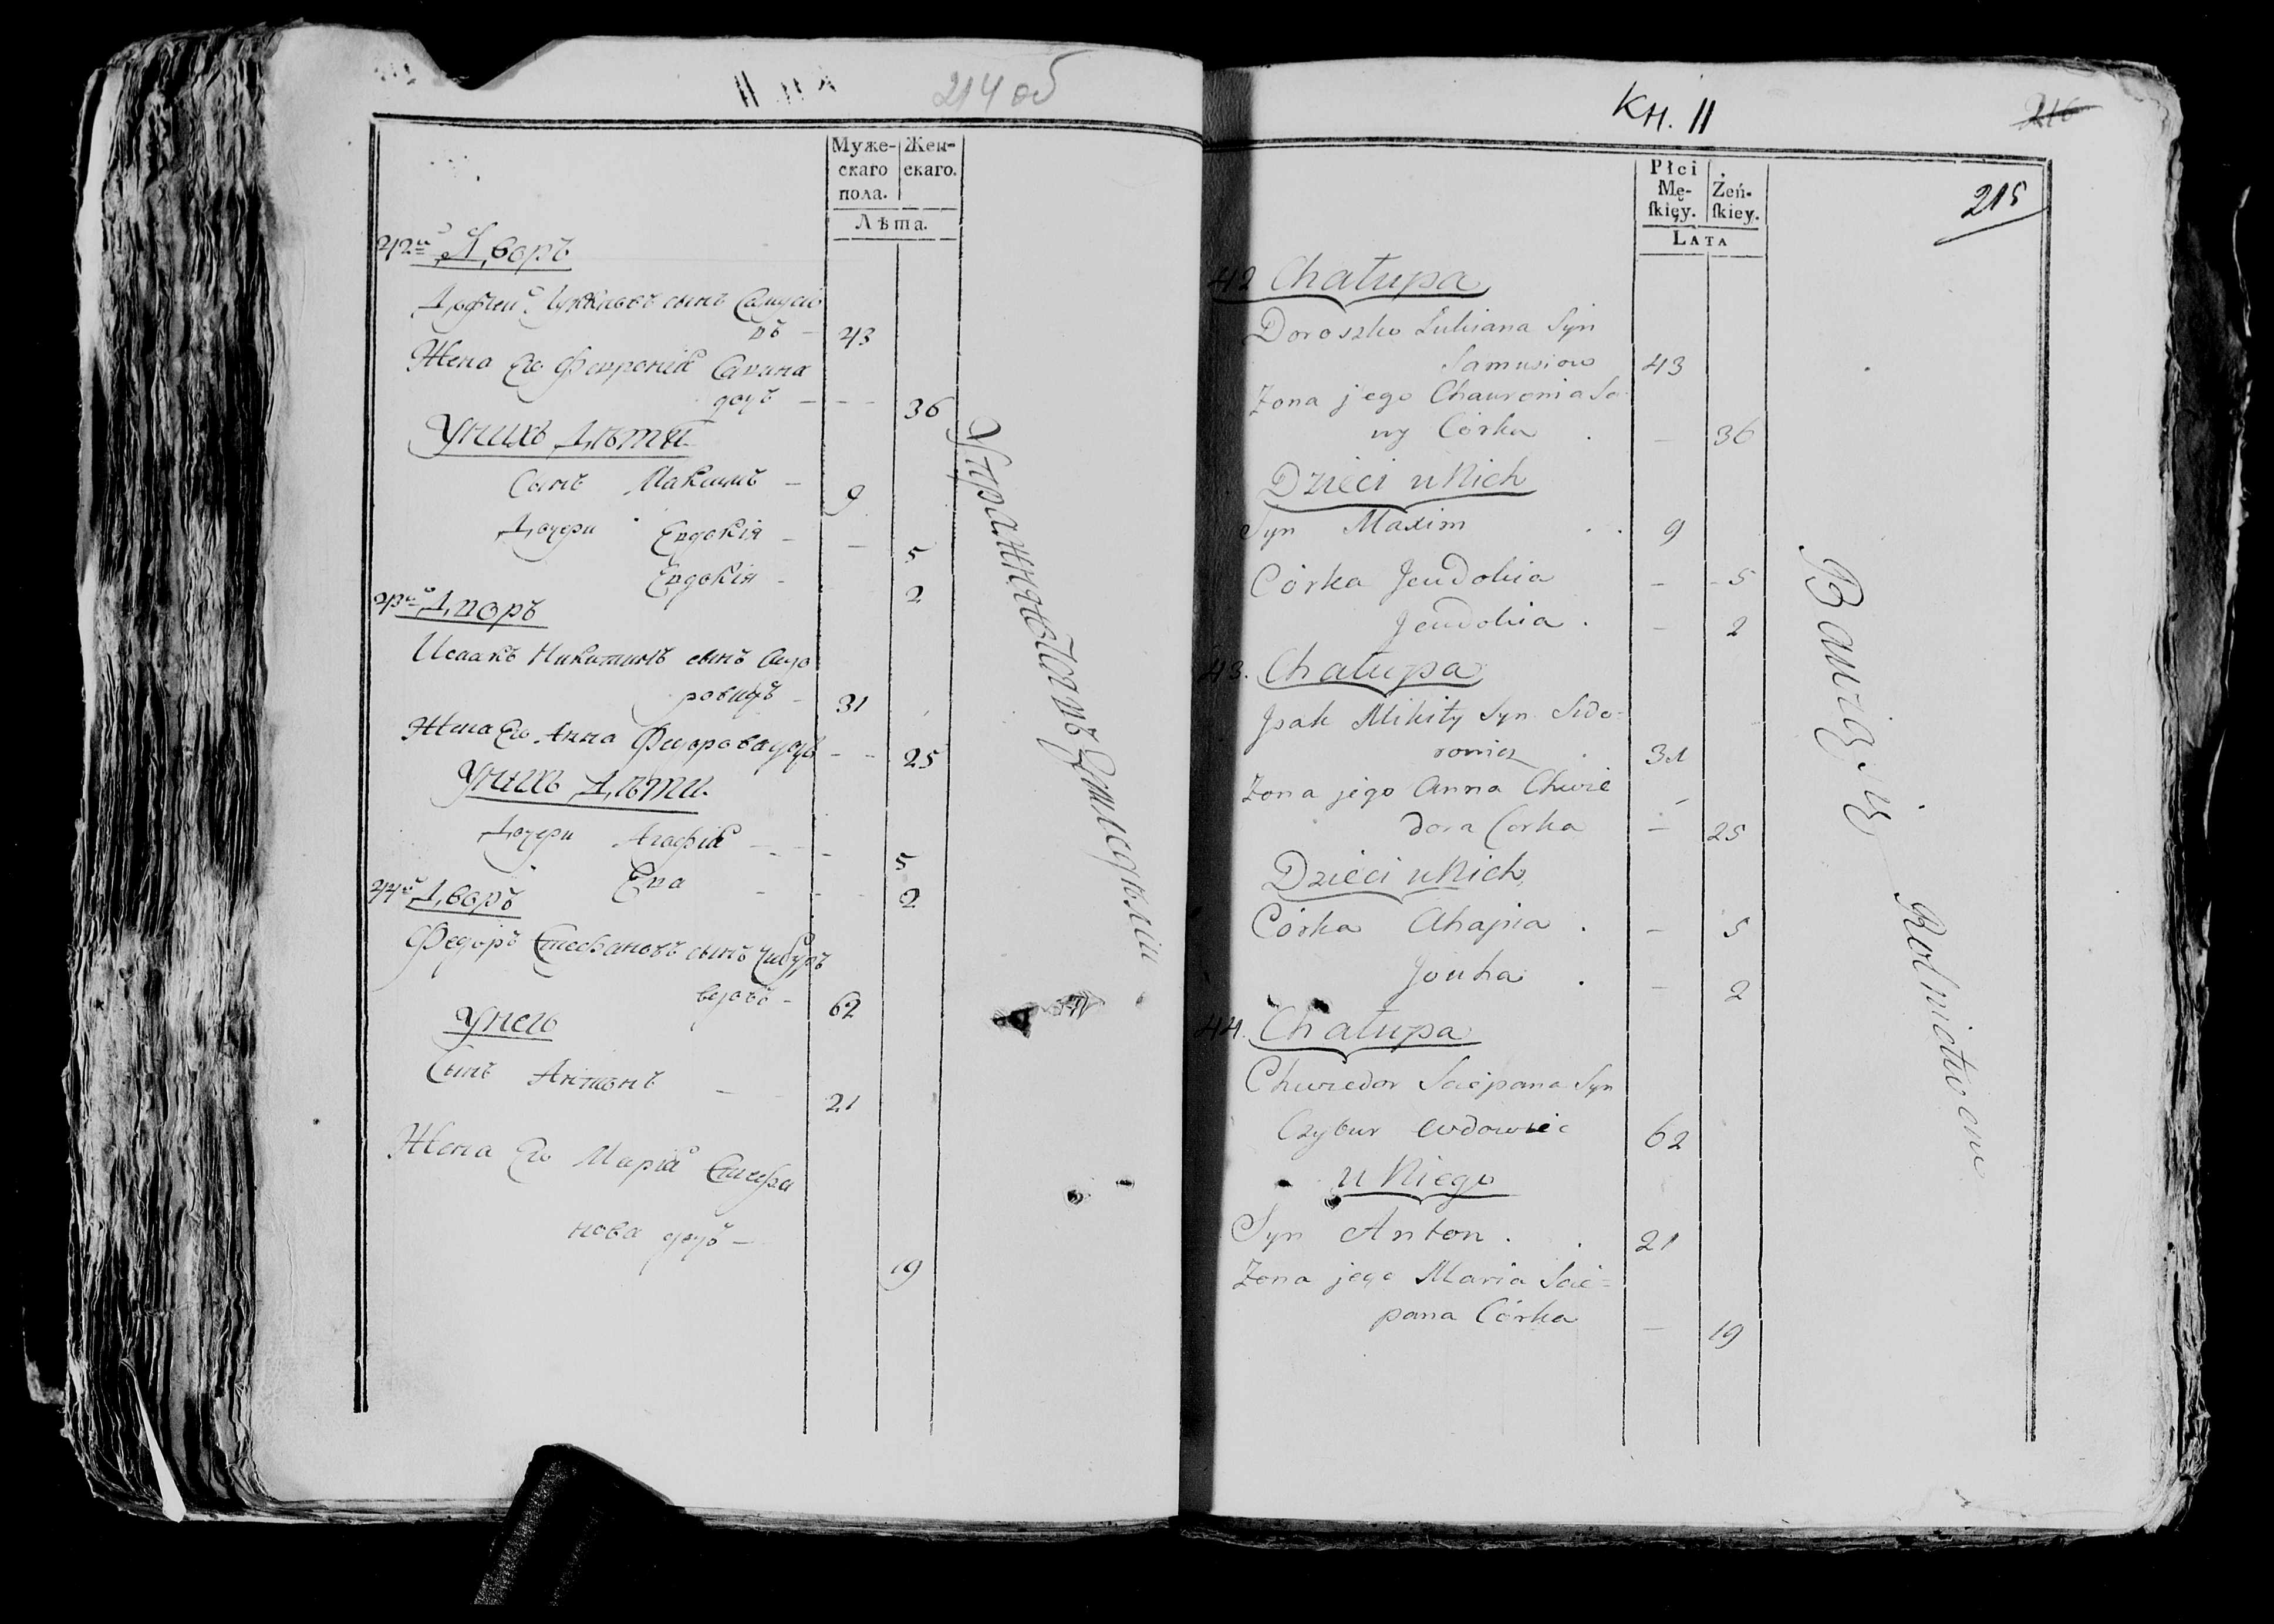 214 об
Муже-
скаго
пола.
Жен-
скаго.
Лѣта.
42й Дворъ
сынъ Самусіо
въ – 43
Жена Его Февронія Савина
дочъ – 36
Унихъ Дѣти
Сынъ Максимъ – 9
Дочери Евдокія – 5
Евдокія – 2
Дворъ
Исаакъ Никитинъ сынъ Сидо
ровичъ – 31
Жена Его Анна Федорова дочь – 25
Унихъ Дѣти.
Дочери Агафія – 5
Ева – 2
44й Дворъ
Федоръ Стефановъ сынъ Чибуръ
вдовъ – 62
Унего
Сынъ Антонъ – 21
Жена Его Марія Стефа
нова дочь – 19
Упражняются въ Земледѣліи
Кн. II
216
215
Płci
Mę-
skięy.
Żeń-
skiey.
LATA
42 Chałupa
Doroszko Łukiana Syn
Samusiow 43
Zona jego Chawronia Sa
wy Córka . – 36
Dzieci u Nich
Syn Maxim . . 9
Córka Jeudokia – 5
Jeudokia . – 2
43. Chałupa
Jsak Mikity Syn Sido-
rowicz . 31
Zona jego Anna Chwie
dora Corka – 25
Dzieci u Nich
Córka Ahapia . – 5
Jouha . – 2
44. Chałupa
Chwiedor Sciepana Syn
Czybur wdowiec 62
u Niego
Syn Anton . . 21
Zona jego Maria Scie-
pana Córka – 19
Bawią się Rolnictwem